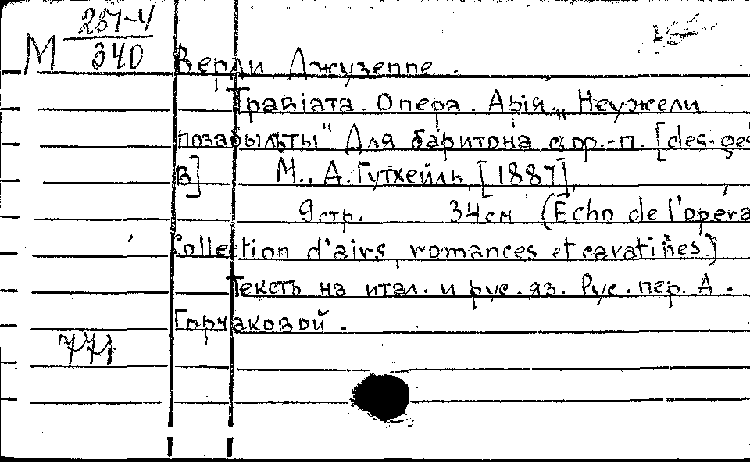 М 257-4
340
Верди Джузеппе.
Травіата. Опера. Арія „Неужели
позабылъ ты" Для баритона с ф.-п. [des-ges
в] М., А. Гутхейль, [1887]
9 стр. 34 см (Echo de l'opéra
Collection d'airs, romances et cavatines)
Текстъ на итал. и рус. яз. Рус. пер. А.
Горчаковой.